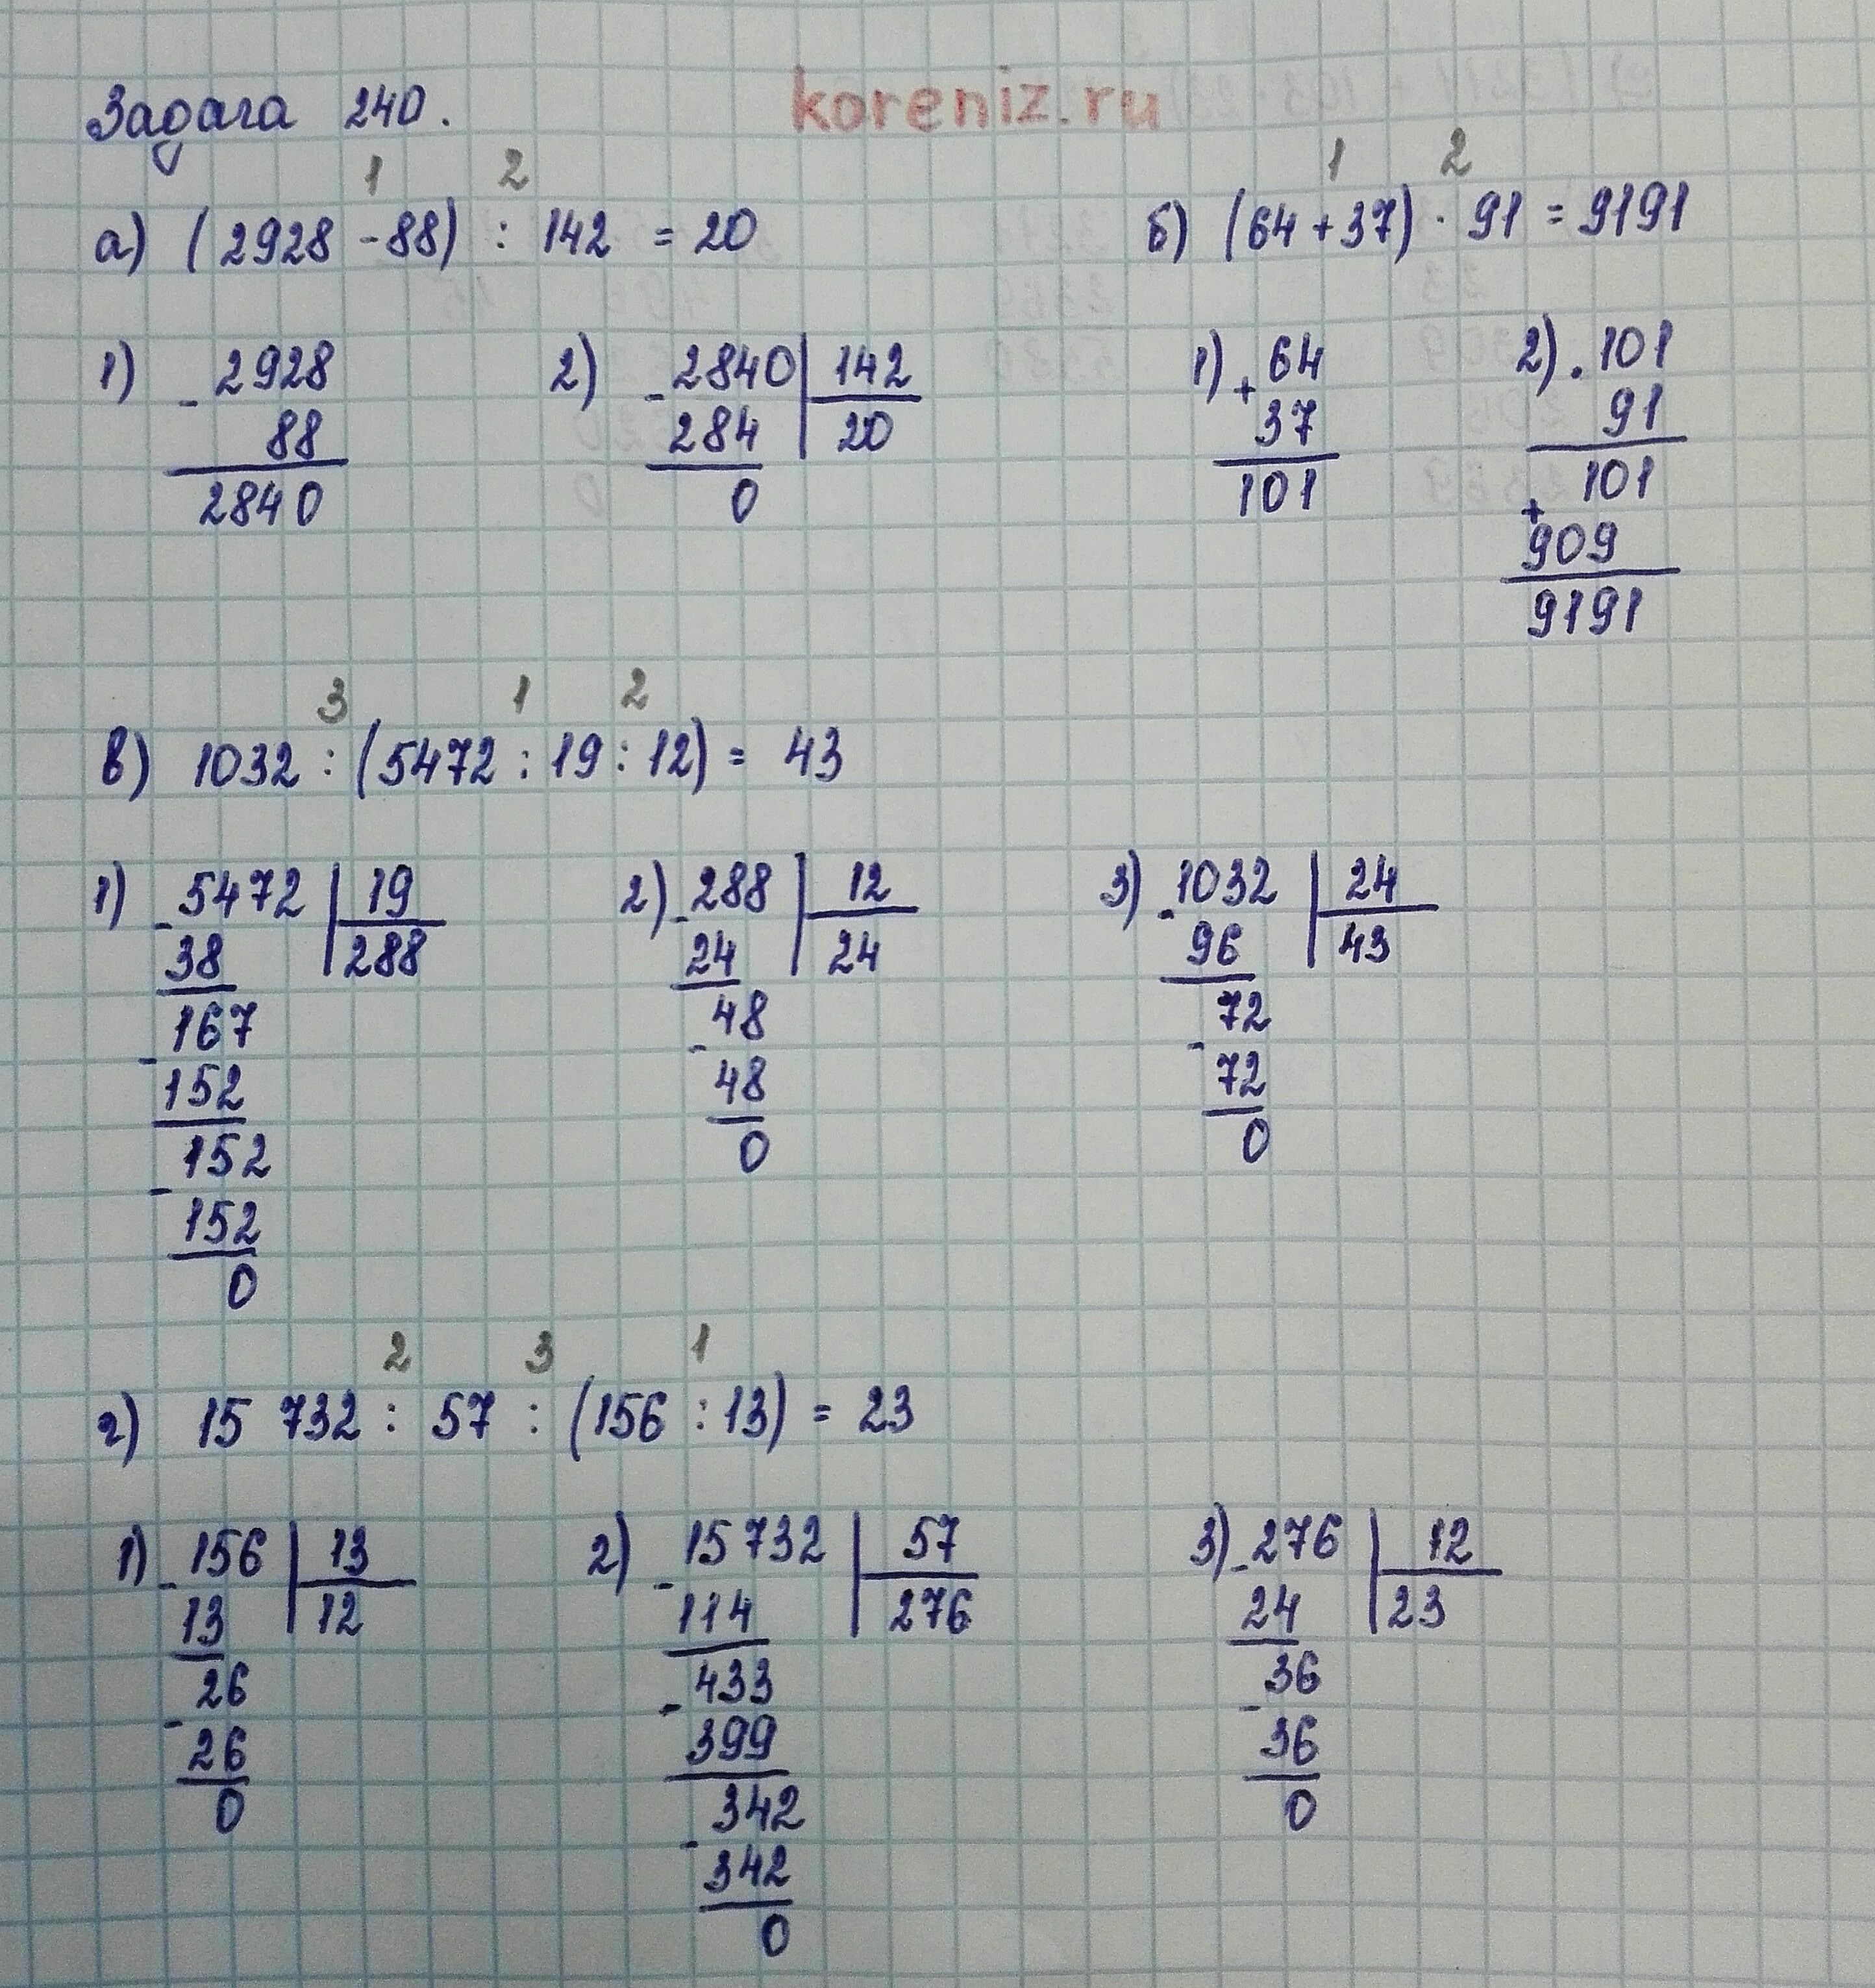 Задача 240.
koreniz.ru
1 2
а) (2928 - 88) : 142 = 20
1) - 2928
88
2840
2) - 2840 | 142
284 | 20
0
1 2
б) (64 + 37) · 91 = 9191
1) + 64
37
101
2) · 101
91
+ 101
909
9191
3 1 2
в) 1032 : (5472 : 19 : 12) = 43
1) - 5472 | 19
38 | 288
- 167
152
- 152
152
0
2) - 288 | 12
24 | 24
- 48
48
0
3) - 1032 | 24
96 | 43
- 72
72
0
2 3 1
г) 15 732 : 57 : (156 : 13) = 23
1) - 156 | 13
13 | 12
- 26
26
0
2) - 15 732 | 57
114 | 276
- 433
399
- 342
342
0
3) - 276 | 12
24 | 23
- 36
36
0